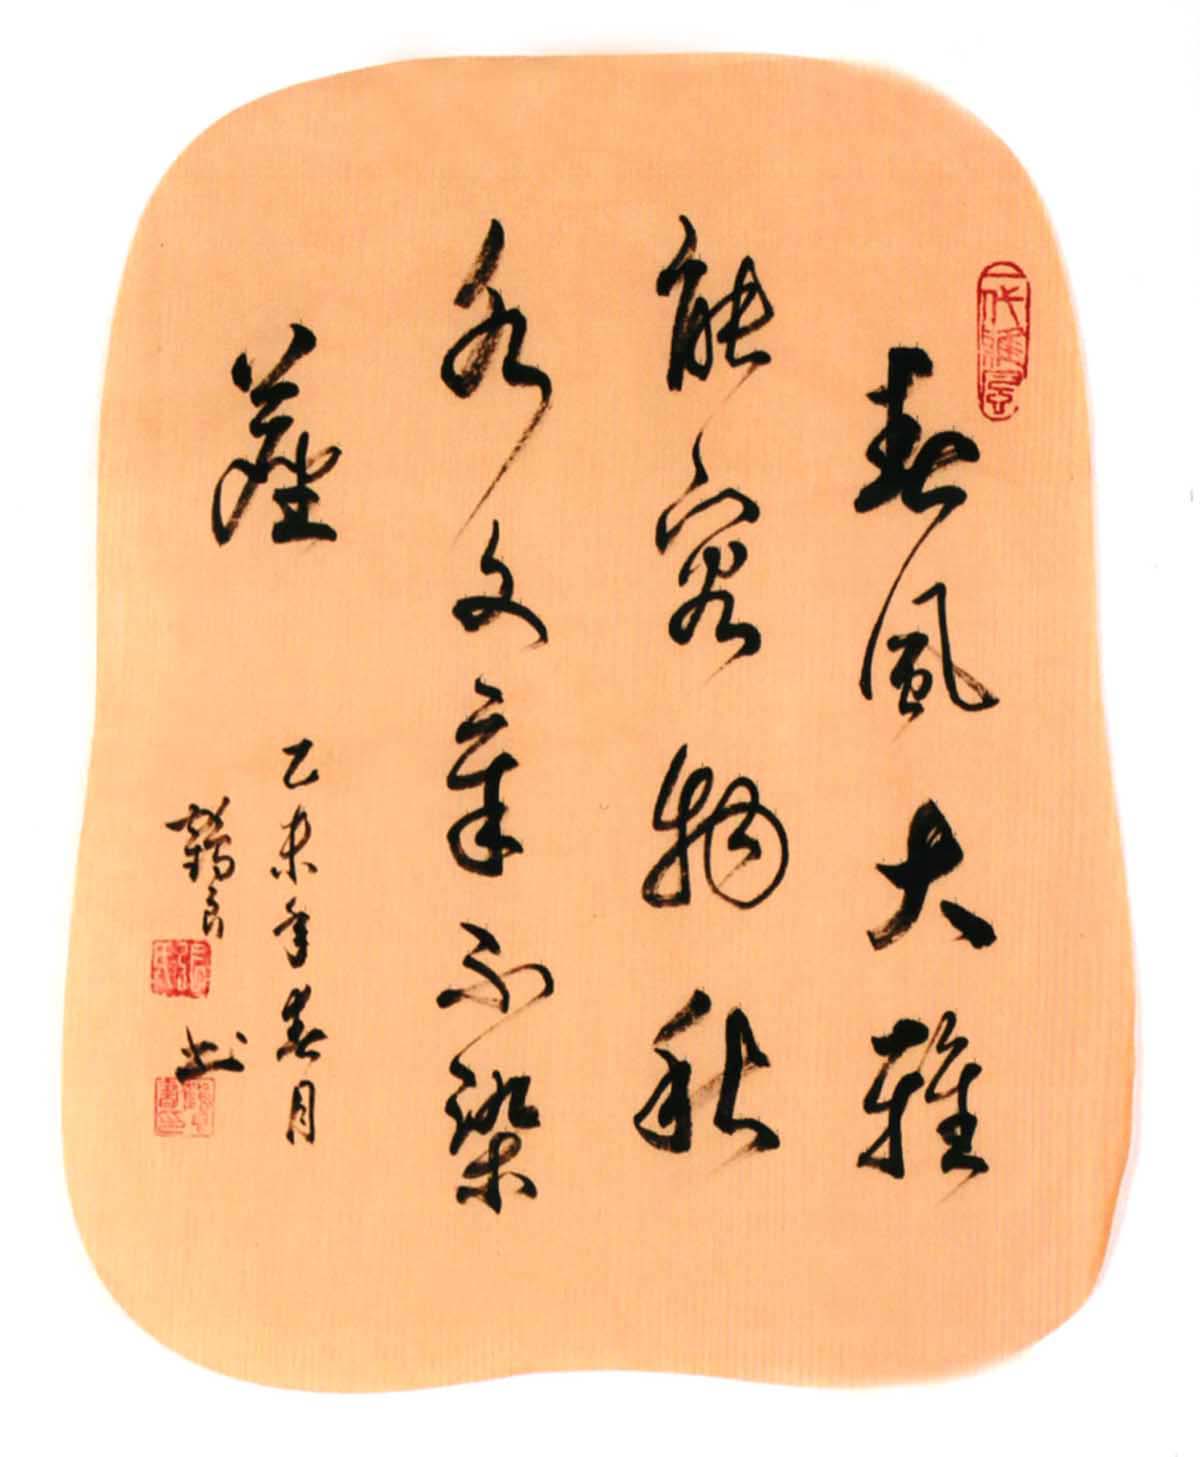 春風大雅
能容物秋
水文章不染
塵
乙未年春月
良书